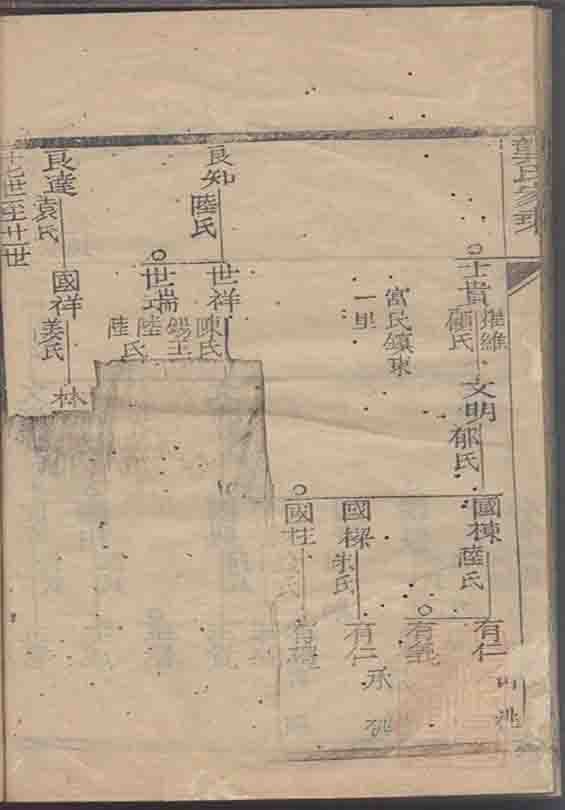 氏家乘
士貴
耀維
顧氏
文明
郁氏
國棟
陸氏
有仁
出洮
有義
國樑
朱氏
有仁
承洮
國柱
有禮
富民鎮東
一里
良知
陸氏
世祥
陳氏
世端
錫土
陸
陸氏
良達
袁氏
國祥
姜氏
林
世至廿一世